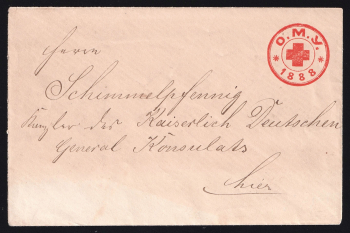 O.M.V.
1888
Herrn
Schimmelpfennig
Kanzler des Kaiserlich Deutschen
General Konsulats
hier